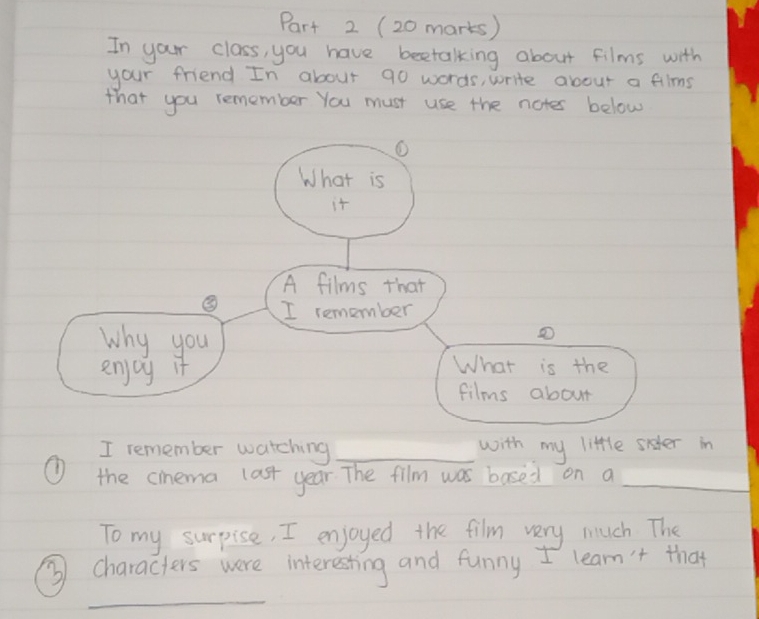 Part 2 (20 marks)
In your class, you have beetalking about films with
your friend In about 90 words, write about a films
that you remember You must use the notes below
①
What is
it
A films that
I remember
③
Why you
enjoy it
②
What is the
films about
① I remember watching __________ with my little sister in
the cinema last year The film was based on a __________
To my surpise, I enjoyed the film very much The
③ characters were interesting and funny I learn't that
__________